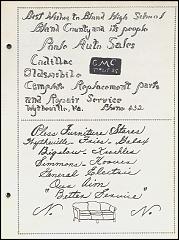 Best Wishes to Bland High School
Bland County and its people
Auto Sales
Cadillac
GMC
Oldsmobile
Complete Replacement parts
and Repair Service
Wytheville, Va. Phone 432
Furniture Stores
Wytheville Galax
Bigelow
Simmons Hoover
General Electric
Our Aim
"Better Service"